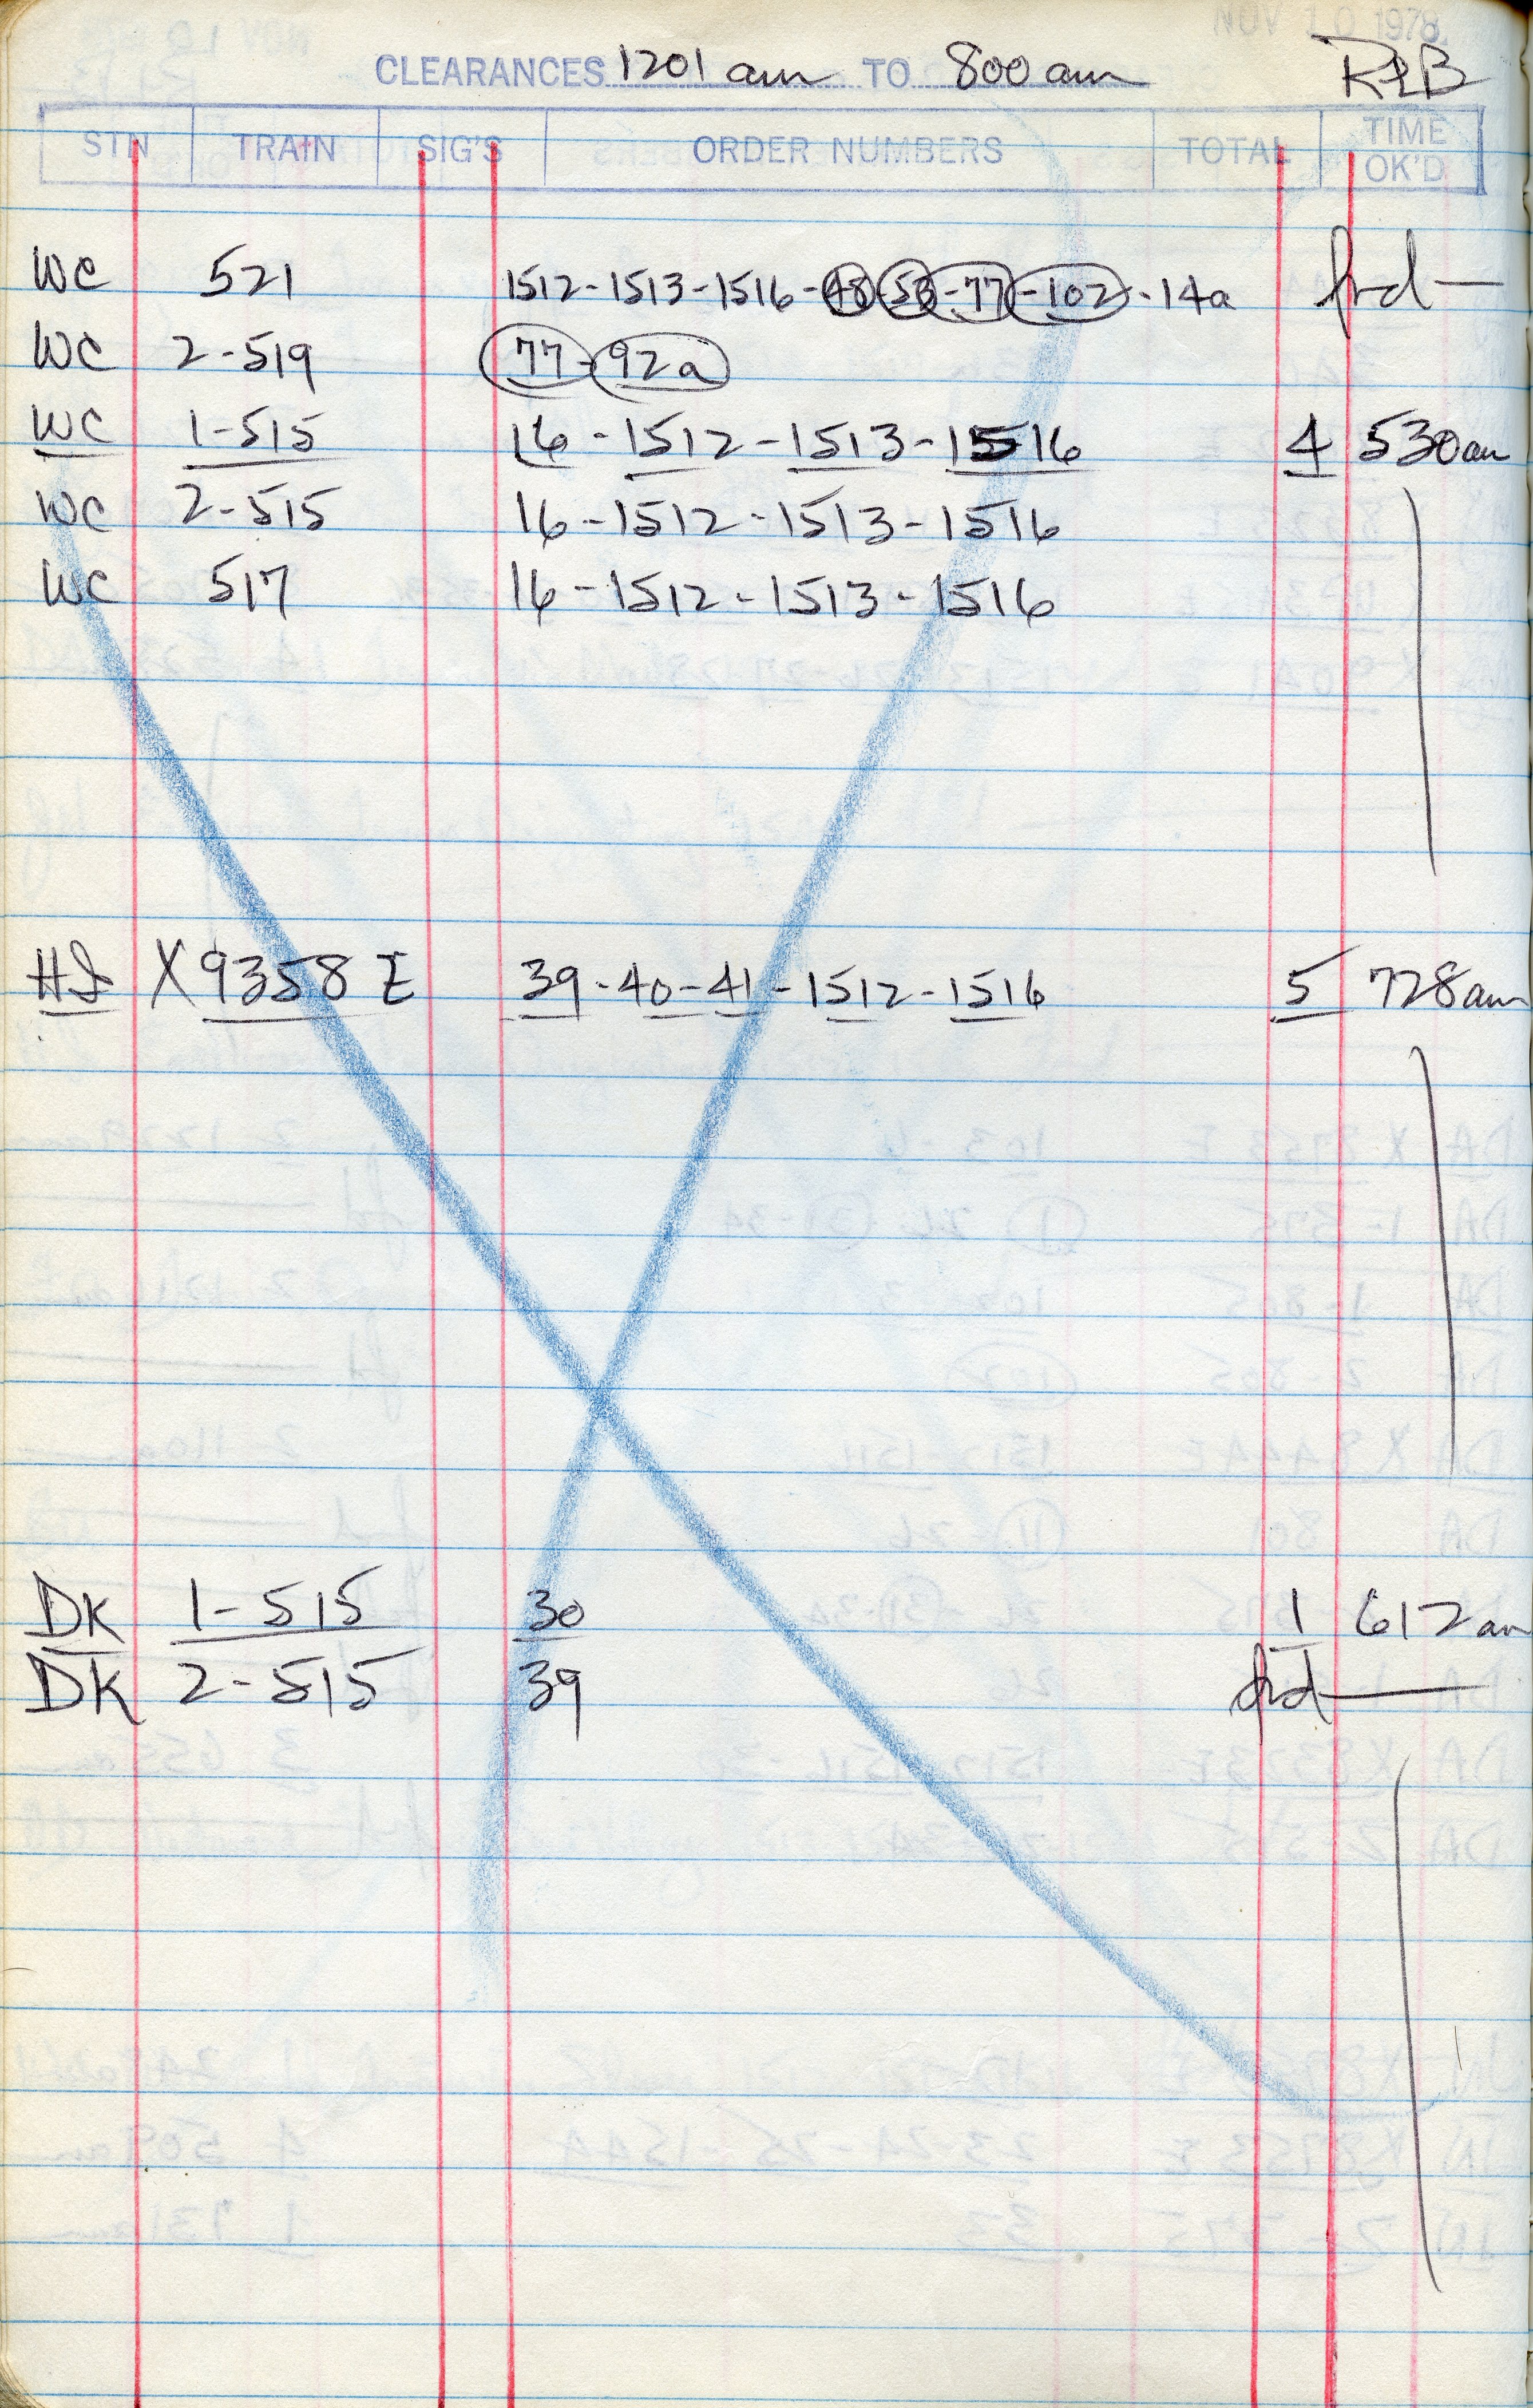 NOV 10 1978.
CLEARANCES 1201 am TO 800 am RLB
STN TRAIN SIG'S ORDER NUMBERS TOTAL TIME OK'D
WC 521 1512-1513-1516-48-58-77-102-14a frd—
WC 2-519 77-92a
WC 1-515 16-1512-1513-1516 4 530am
WC 2-515 16-1512-1513-1516
WC 517 16-1512-1513-1516
X9358 E 39-40-41-1512-1516 5 728am
DK 1-515 30 1 612am
DK 2-515 39 frd—